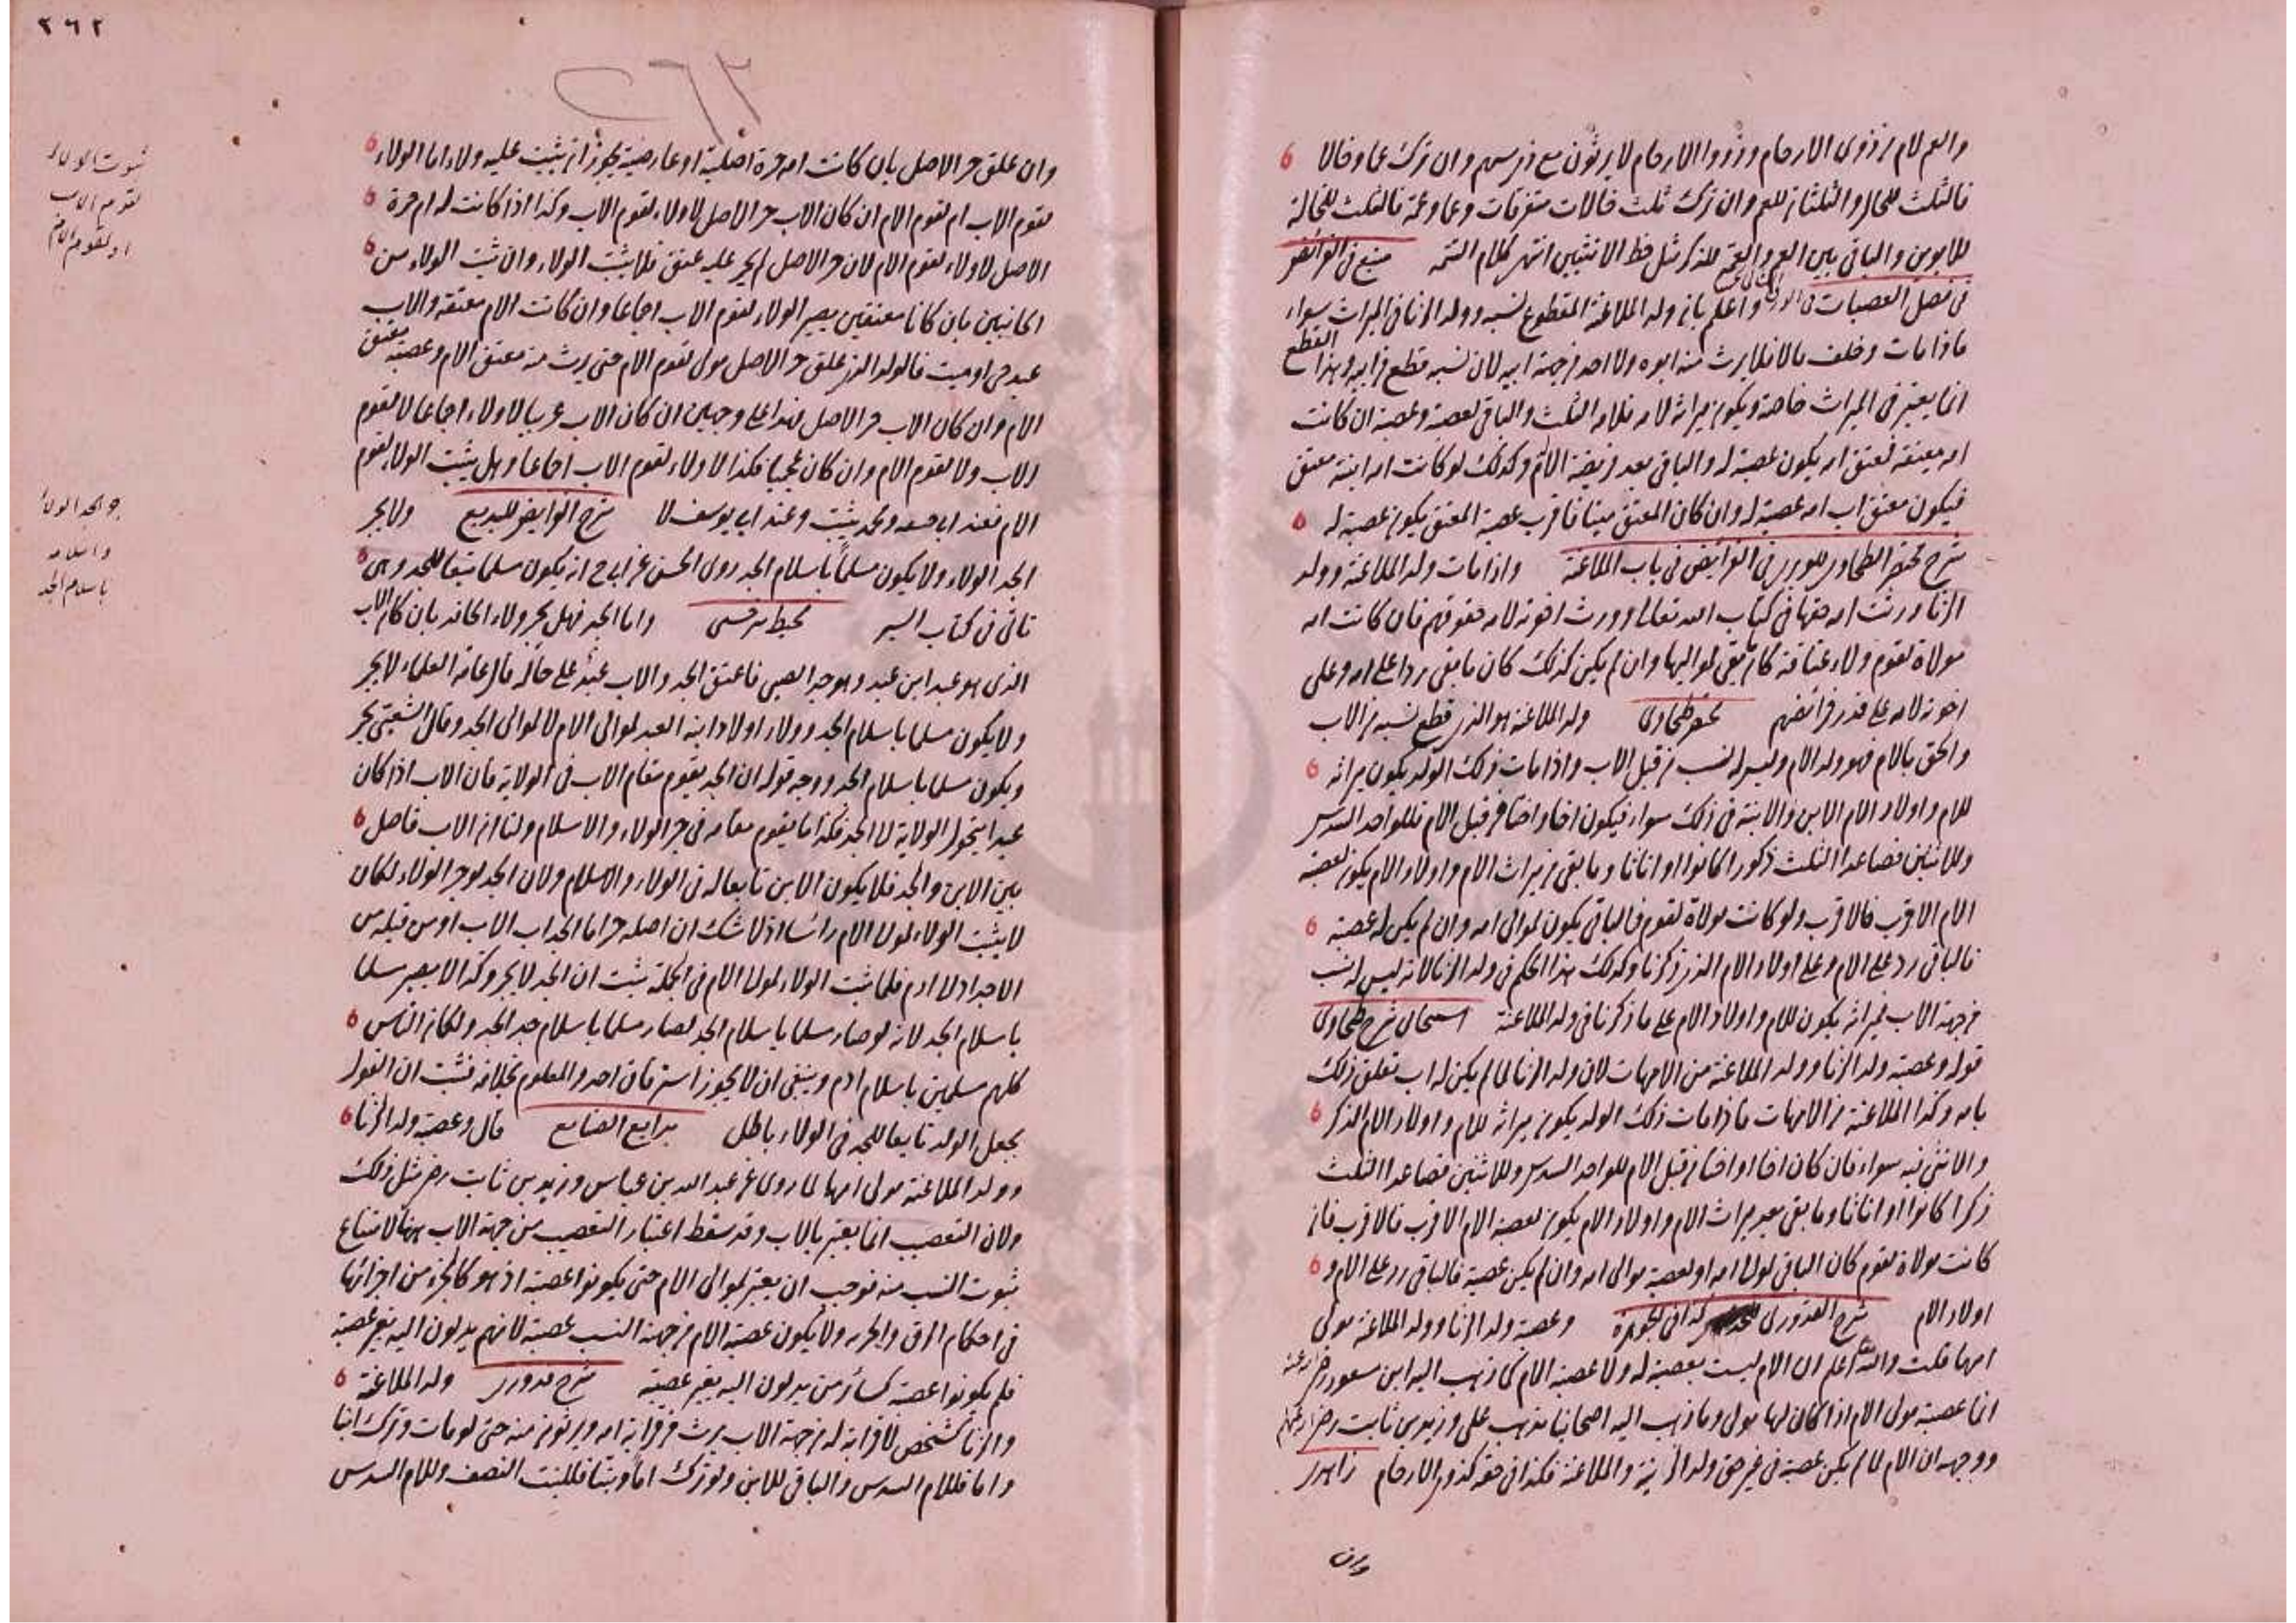 والعم لام من ذوى الارحام وذووا الارحام لا يرثون مع ذى سهم وان ترك عما وخالا
فالثلث للخال والثلثان للعم وان ترك ثلث خالات متفرقات وعما وعمة فالثلث للخالة
للابوين والباقى بين العم والعمة للذكر مثل حظ الانثيين انتهى كلام
فى فصل العصبات واعلم بان ولد الملاعنة المقطوع نسبه وولد الزنا فى الميراث سواء
فاذا مات وخلف مالا فلا يرث منه ابوه ولا احد من جهة ابيه لان نسبه قطع من ابيه وهذا القطع
انما يعتبر فى الميراث خاصة ويكون ميراثه لامه فلامه الثلث والباقى لعصبة وعصبة ان كانت
امه معتقة فمعتق امه يكون عصبة له والباقى بعد فريضة الام وكذلك لو كانت امه ابنة معتق
فيكون معتق اب امه عصبة له وان كان المعتق ميتا فاقرب عصبة المعتق يكون عصبة له
شرح مختصر الطحاوى فى الفرائض فى باب الملاعنة واذا مات ولد الملاعنة وولد
الزنا ورثت امه حقها فى كتاب الله تعالى وورث اخوته لامه حقوقهم فان كانت امه
مولاة لقوم ولاء عتاقة كان ما بقى لمواليها وان لم يكن كذلك كان ما بقى ردا على امه وعلى
اخوته لامه على قدر فرائضهم مختصر طحاوى ولد الملاعنة هو الذى قطع نسبه من الاب
والحق بالام فهو ولد الام وليس له نسب من قبل الاب واذا مات ذلك الولد يكون ميراثه
للام واولاد الام الابن والابنة فى ذلك سواء فيكون اخا واختا من قبل الام فللواحد السدس
وللاثنين فصاعدا الثلث ذكورا كانوا او اناثا وما بقى من ميراث الام واولاد الام يكون لعصبة
الام الاقرب فالاقرب ولو كانت مولاة لقوم فالباقى يكون لموالى امه وان لم يكن له عصبة
فالباقى رد على الام وعلى اولاد الام الذى ذكرنا وكذلك هذا الحكم فى ولد الزنا لانه ليس له نسب
من جهة الاب فميراثه يكون للام واولاد الام على ما ذكرنا فى ولد الملاعنة اسبيجابى شرح طحاوى
قوله وعصبة ولد الزنا وولد الملاعنة من الامهات لان ولد الزنا لما لم يكن له اب تعلق ذلك
بامه وكذا الملاعنة من الامهات فاذا مات ذلك الولد يكون ميراثه للام واولاد الام الذكر
والانثى فيه سواء فان كان اخا او اختا من قبل الام للواحد السدس وللاثنين فصاعدا الثلث
ذكرا كانوا او اناثا وما بقى بعد ميراث الام واولاد الام يكون لعصبة الام الاقرب فالاقرب فان
كانت مولاة لقوم كان الباقى لمولى امه او لعصبة موالى امه وان لم يكن عصبة فالباقى رد على الام و
اولاد الام شرح القدورى وعصبة ولد الزنا وولد الملاعنة مولى
امهما قلت والله اعلم ان الام ليست بعصبة له ولا عصبة الام كما ذهب اليه ابن مسعود رضى الله عنه
انما عصبة مولى الام اذا كان لها مولى وما ذهب اليه اصحابنا مذهب على وزيد بن ثابت رضى الله عنهم
ووجهه ان الام لما لم يكن عصبة فى غير حق ولد الزنية والملاعنة فكذا فى حقه كذوى الارحام زاهدى
وان
٣٦٢
٢٦٢
وان علق حر الاصل بان كانت امه حرة اصلية او عارضية يجوز ان يثبت عليه ولاء اما الولاء
لقوم الاب ام لقوم الام ان كان الاب حر الاصل لا ولاء لقوم الاب وكذا اذا كانت له ام حرة
الاصل لا ولاء لقوم الام لان حر الاصل لم يجر عليه عتق فلا يثبت الولاء وان ثبت الولاء من
الجانبين بان كانا معتقين يصير الولاء لقوم الاب اجماعا وان كانت الام معتقة والاب
عبد حى او ميت فالولد الذى علق حر الاصل مولى لقوم الام حتى يرث منه معتق الام وعصبة معتق
الام وان كان الاب حر الاصل فهذا على وجهين ان كان الاب عربيا لا ولاء اجماعا لا لقوم
الاب ولا لقوم الام وان كان عجميا فكذا لا ولاء لقوم الاب اجماعا وهل يثبت الولاء لقوم
الام فعند ابى حنيفه ومحمد يثبت وعند ابى يوسف لا شرح الفرايض للبديع ولا يجر
الجد الولاء ولا يكون مسلما باسلام الجد روى الحسن عن ابى ح انه يكون مسلما تبعا للجد وهى
تاتى فى كتاب السير محيط سرخسى واما الجد فهل يجر ولاء الحافد بان كان الاب
الذى هو عبد ابن عبد وهو جد الصبى فاعتق الجد والاب عبد على حاله قال عامة العلماء لا يجر
ولا يكون مسلما باسلام الجد وولاء اولاد ابنه العبد لموالى الام لا لموالى الجد وقال الشعبى يجر
ويكون مسلما باسلام الجد ووجه قوله ان الجد يقوم مقام الاب فى الولاية فان الاب اذا كان
عبدا يتحول الولاية الى الجد فكذا يقوم مقامه فى جر الولاء والاسلام ولنا ان الاب فاصل
بين الابن والجد فلا يكون الابن تابعا له فى الولاء والاسلام ولان الجد لو جر الولاء لكان
لا يثبت الولاء لمولى الام راسا اذ لا شك ان اصله حر اما الجد اب الاب او من قبله من
الاجداد الى ادم فلما ثبت الولاء لمولى الام فى الجملة ثبت ان الجد لا يجر وكذا لا يصير مسلما
باسلام الجد لانه لو صار مسلما باسلام الجد لصار مسلما باسلام جد الجد ولكان الناس
كلهم مسلمين باسلام ادم وينبغى ان لا يجوز استرقاق احد والمعلوم بخلافه فثبت ان القول
بجعل الولد تابعا للجد فى الولاء باطل بدايع الصنايع قال وعصبة ولد الزنا
وولد الملاعنة مولى امهما لما روى عن عبد الله بن عباس وزيد بن ثابت رض مثل ذلك
ولان التعصيب انما يعتبر بالاب وقد سقط اعتبار التعصيب من جهة الاب ههنا لامتناع
ثبوت النسب منه فوجب ان يعتبر لموالى الام حتى يكونوا عصبة اذ هو كالجزء من اجزائها
فى احكام الرق والحرية ولا يكون عصبة الام من جهة النسب عصبة لانهم يدلون اليه بغير عصبة
فلم يكونوا عصبة كسائر من يدلون اليه بغير عصبة شرح قدورى ولد الملاعنة
والزنا كشخص لا قرابة له من جهة الاب يرث من قرابة امه ويرثون منه حتى لو مات وترك ابنا
واما فللام السدس والباقى للابن ولو ترك اما وبنتا فللبنت النصف وللام السدس
ثبوت الولاء
لقوم الاب
او لقوم الام
جر الجد الولاء
واسلامه
باسلام الجد